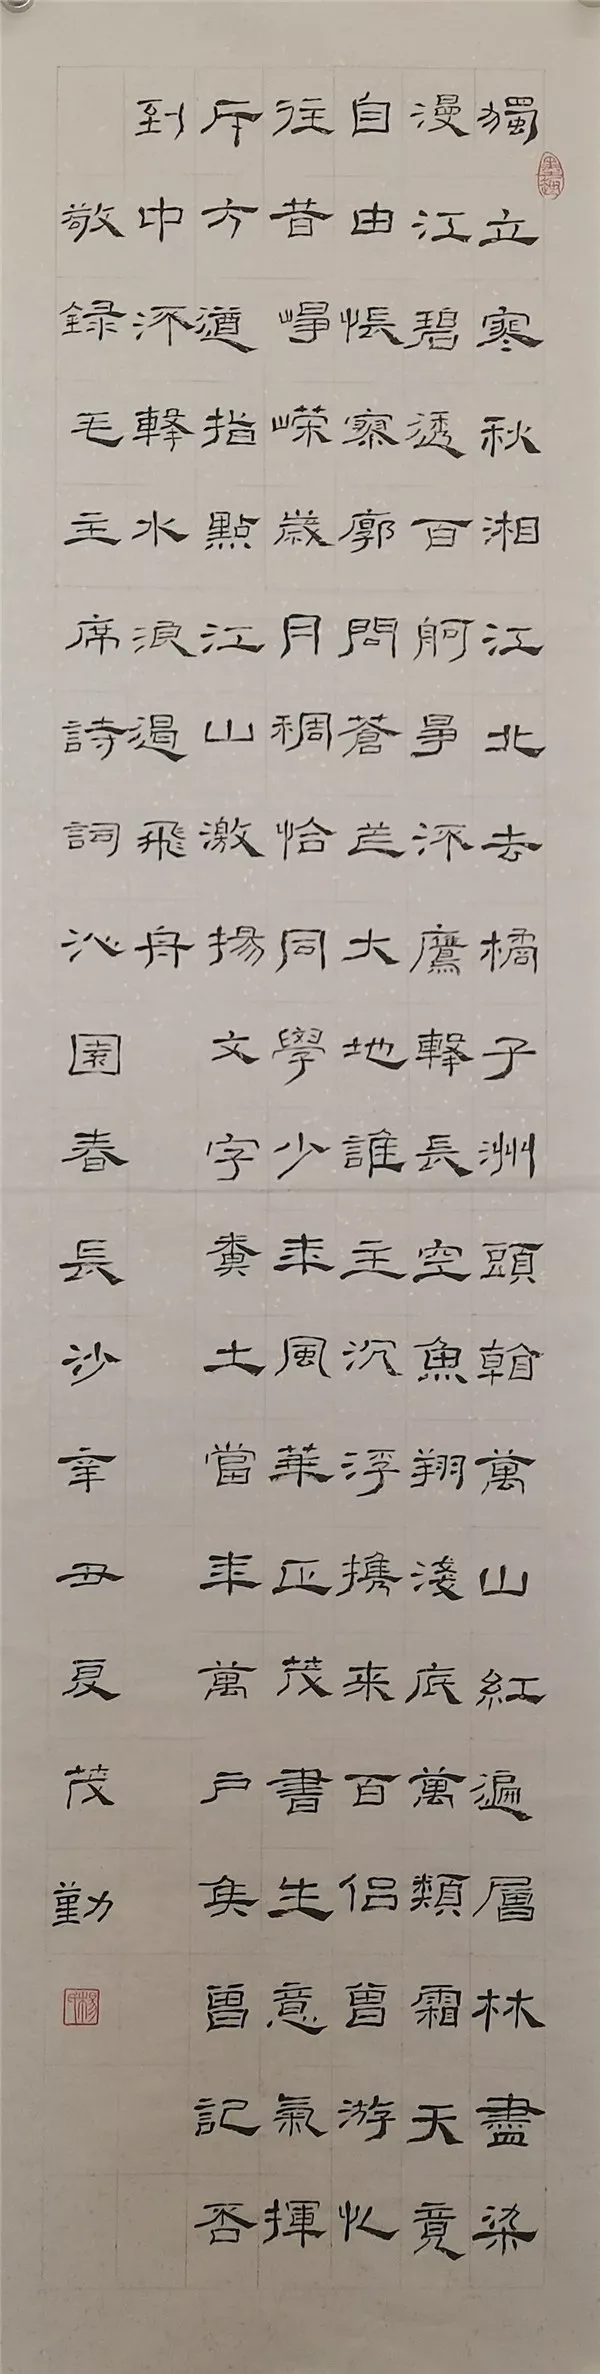 獨立寒秋湘江北去橘子洲頭看萬山紅遍層林盡染
漫江碧透百舸爭流鷹擊長空魚翔淺底萬類霜天竟
自由悵寥廓問蒼茫大地誰主沉浮携来百侣曾游忆
往昔崢嶸歲月稠恰同學少年風華正茂書生意氣揮
斥方遒指點江山激揚文字糞土當年萬户矦曾記否
到中流擊水浪遏飛舟
敬録毛主席詩詞沁園春長沙辛丑夏茂勤